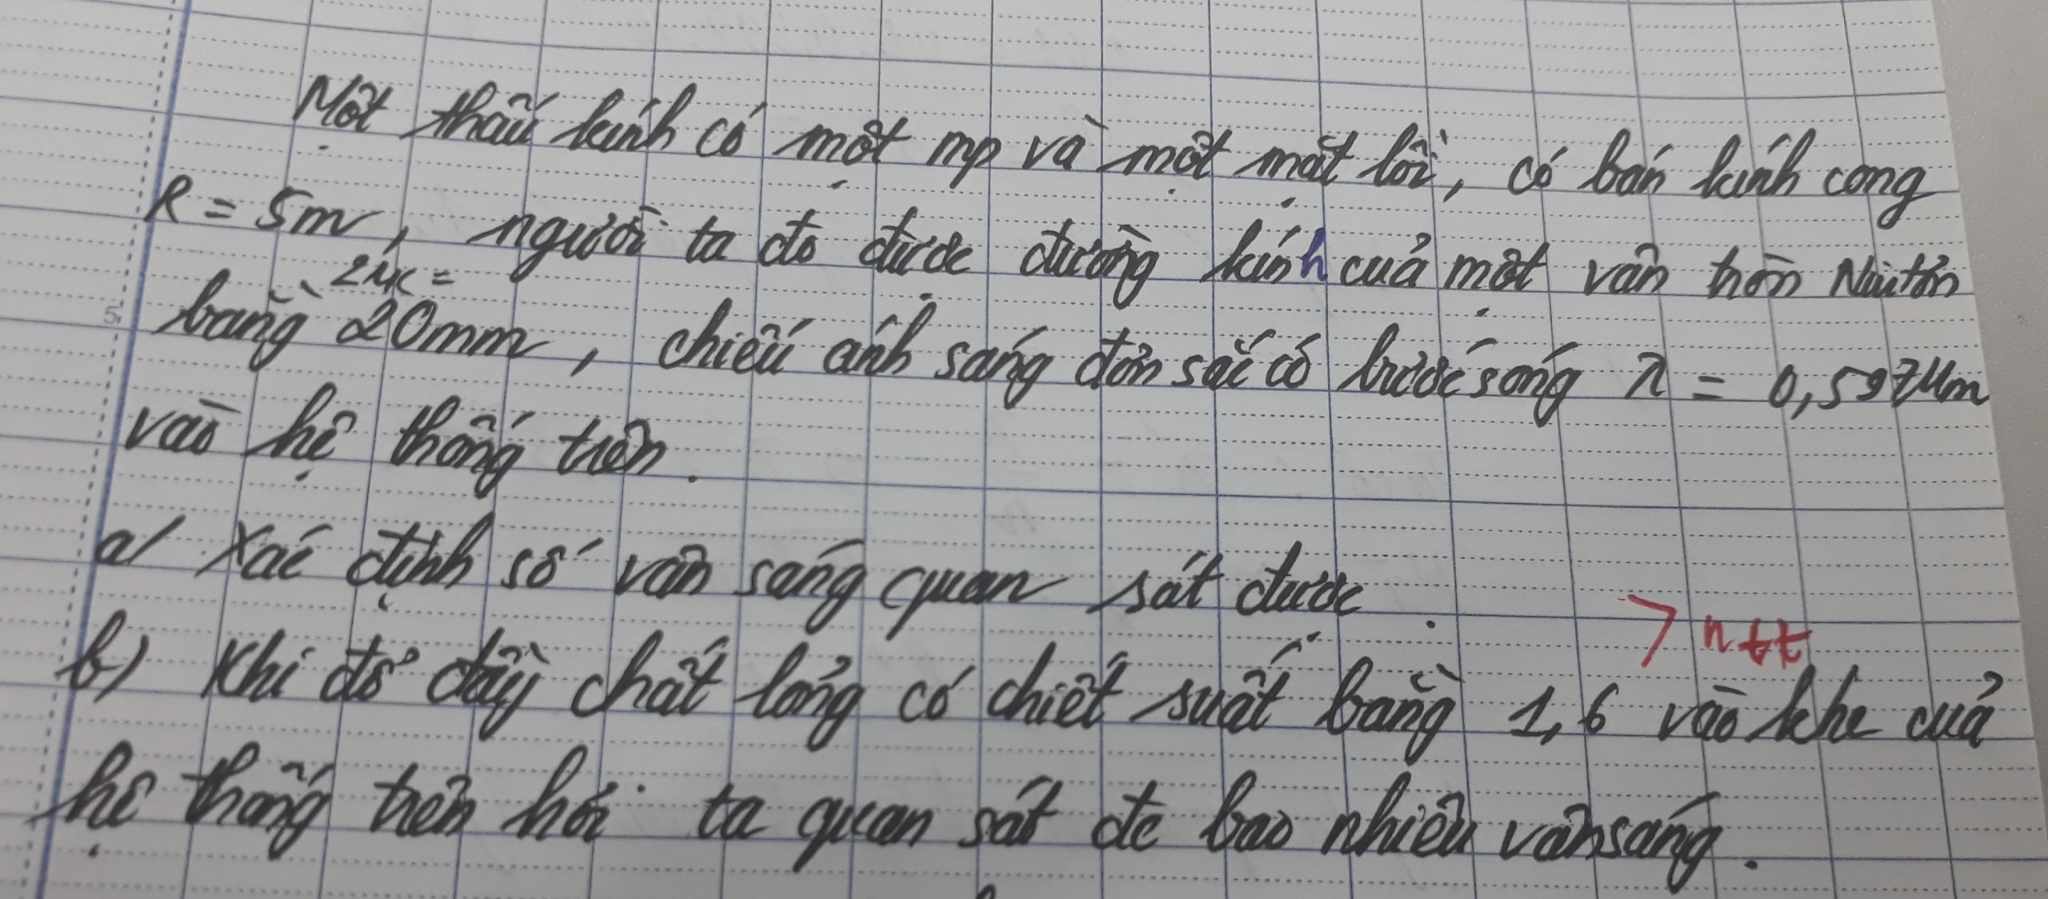 Một thấu kính có một mp và một mặt lồi, có bán kính cong
R = 5m, người ta đo được đường kính của một vân tròn Niutơn
2rk =
bằng 20mm, chiếu ánh sáng đơn sắc có bước sóng λ = 0,597μm
vào hệ thống trên.
a/ Xác định số vân sáng quan sát được.
> ntt
b) Khi đổ đầy chất lỏng có chiết suất bằng 1,6 vào khe của
hệ thống trên hỏi ta quan sát đc bao nhiêu vân sáng.